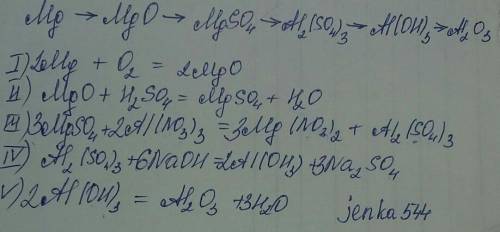 Mg → MgO → MgSO4 → Al2(SO4)3 → Al(OH)3 → Al2O3
I) 2Mg + O2 = 2MgO
II) MgO + H2SO4 = MgSO4 + H2O
III) 3MgSO4 + 2Al(NO3)3 = 3Mg(NO3)2 + Al2(SO4)3
IV) Al2(SO4)3 + 6NaOH = 2Al(OH)3 + 3Na2SO4
V) 2Al(OH)3 = Al2O3 + 3H2O jenka544